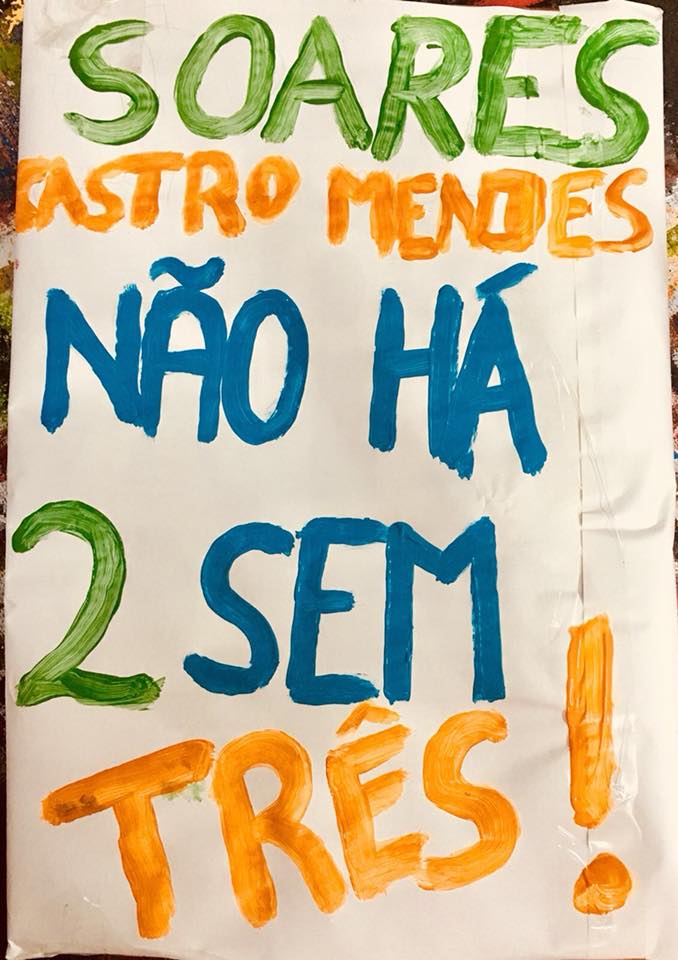 SOARES
CASTRO MENDES
NÃO HÁ
2 SEM
TRÊS!